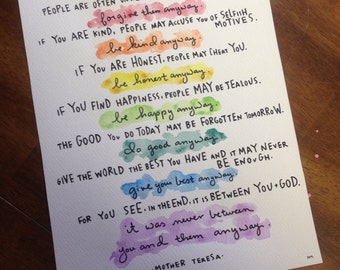 PEOPLE ARE OFTEN
forgive them anyway.
IF YOU ARE KIND, PEOPLE MAY ACCUSE YOU OF SELFISH,
MOTIVES.
be kind anyway.
IF YOU ARE HONEST, PEOPLE MAY CHEAT YOU.
be honest anyway.
IF YOU FIND HAPPINESS, PEOPLE MAY BE JEALOUS.
be happy anyway.
THE GOOD YOU DO TODAY MAY BE FORGOTTEN TOMORROW.
do good anyway.
GIVE THE WORLD THE BEST YOU HAVE AND IT MAY NEVER
BE ENOUGH.
give your best anyway.
FOR YOU SEE, IN THE END, IT IS BETWEEN YOU + GOD.
it was never between
you and them anyway.
MOTHER TERESA.